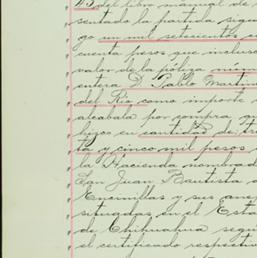 45 del libro manual de
sentado la partida sigu
go un mil setecientos
cuenta pesos que inclus
valor de la póliza núm
entera D. Pablo Martin
del Rio como importe
alcabala por compra qu
hizo en cantidad de tre
ta y cinco mil pesos
la Hacienda nombrad
San Juan Bautista
Encinillas y sus ane
situadas en el Esta
de Chihuahua segu
el certificado respecti